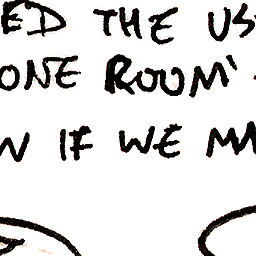 ED THE US
ONE ROOM'
N IF WE MA